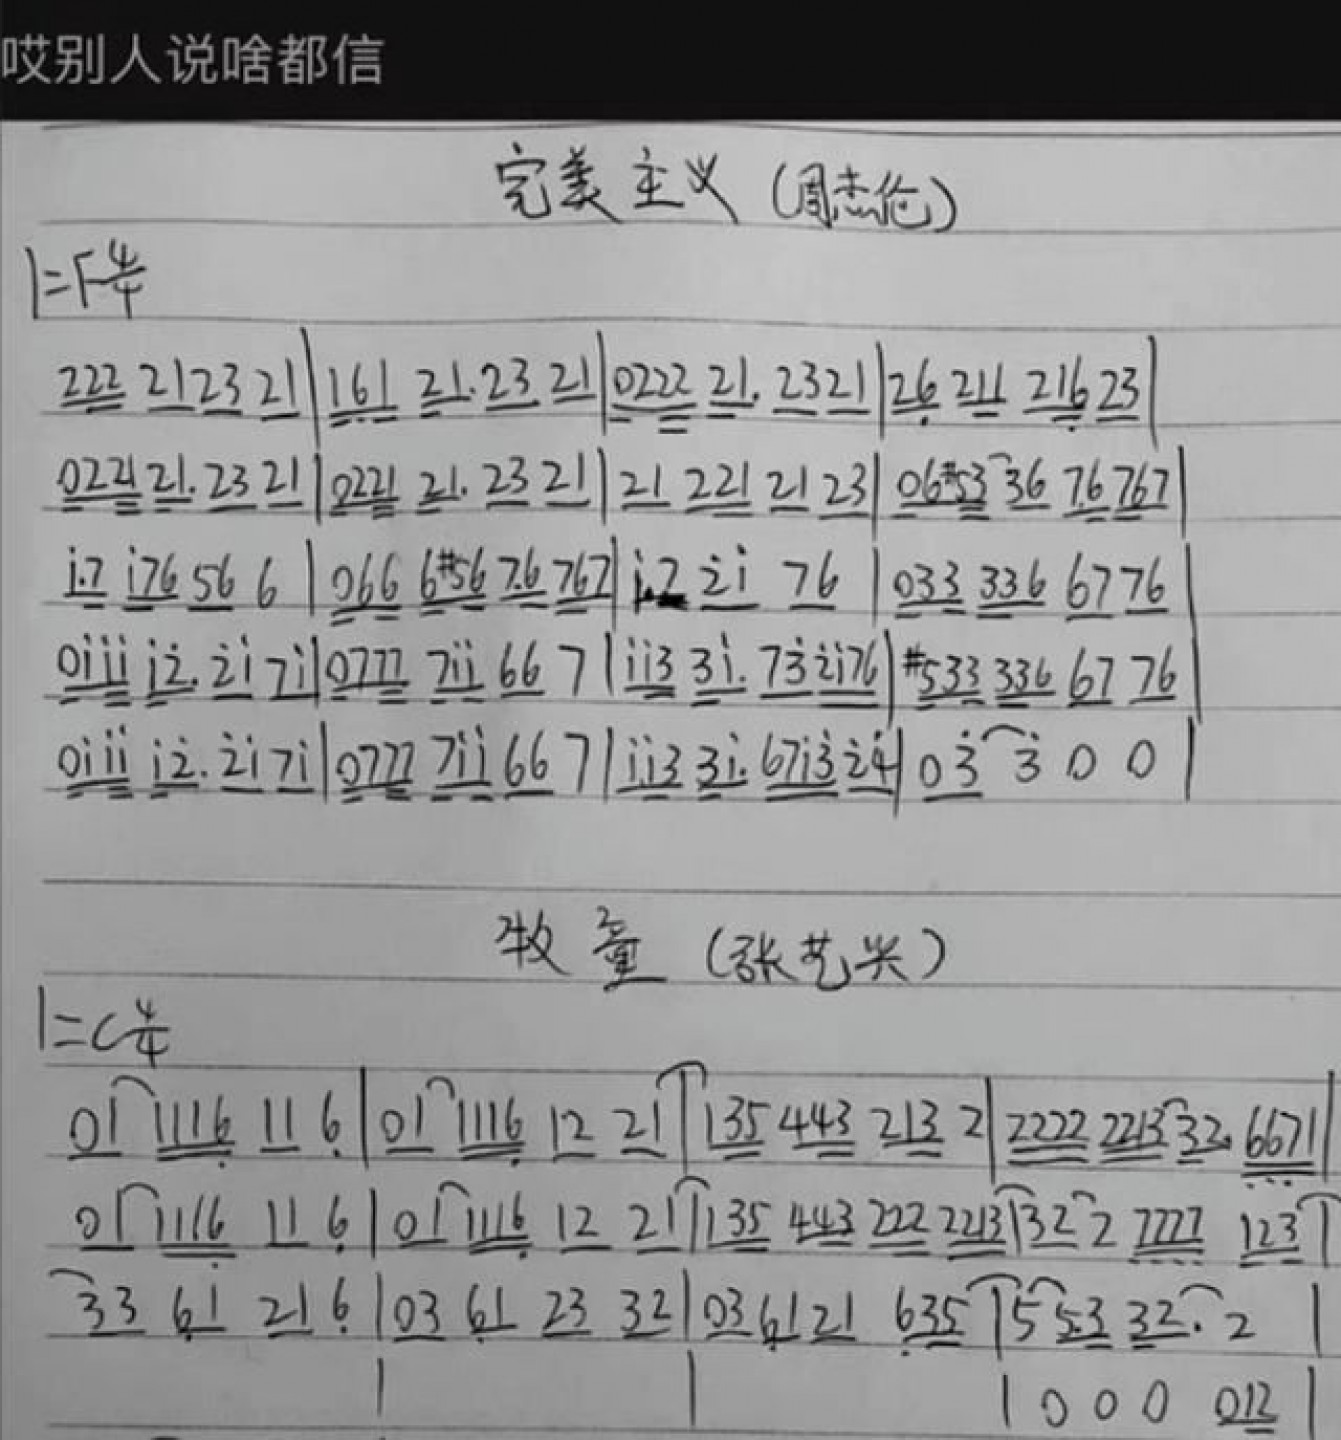 哎别人说啥都信
完美主义 (周杰伦)
1=F 4/4
222 21 23 21 | 161 21. 23 21 | 0222 21. 23 21 | 26 211 216 23 |
0221 21. 23 21 | 0221 21. 23 21 | 21 221 21 23 | 06#53 36 7.6 767 |
i.7 i76 56 6 | 066 6#56 7.6 767 | i.2 2i 76 | 033 336 67 76 |
0iii i2. 2i 7i | 0777 7ii 66 7 | ii3 3i. 73 2i76 | #533 336 67 76 |
0iii i2. 2i 7i | 0777 7ii 66 7 | ii3 3i. 67i3 24 | 03 3 0 0 |
牧童 (张艺兴)
1=C 4/4
01 1116 11 6 | 01 1116 12 21 | 135 443 213 2 | 2222 2213 32. 6671 |
01 1116 11 6 | 01 1116 12 21 | 135 443 222 2213 | 32 2 7777 123 |
33 61 21 6 | 03 61 23 32 | 03 61 21 635 | 5 53 32. 2 |
| | | 0 0 0 012 |